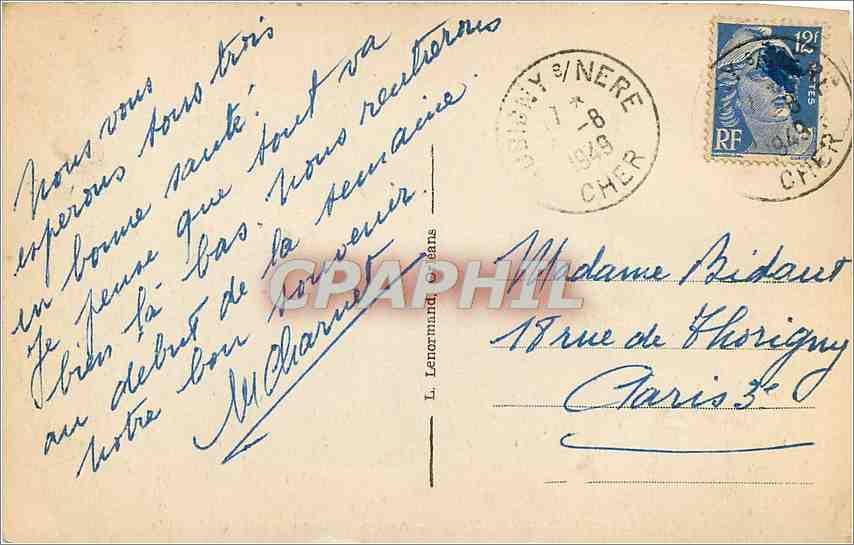 Nous vous
espérons tous trois
en bonne santé.
Je pense que tout va
bien là bas. Nous rentrerons
au début de la semaine.
Notre bon souvenir.
M Charnet
L. Lenormand, Orléans
CPAPHIL
AUBIGNY S/ NERE
1949
CHER
12F
RF
1949
CHER
Madame Bidaut
18 rue de Thorigny
Paris 3e